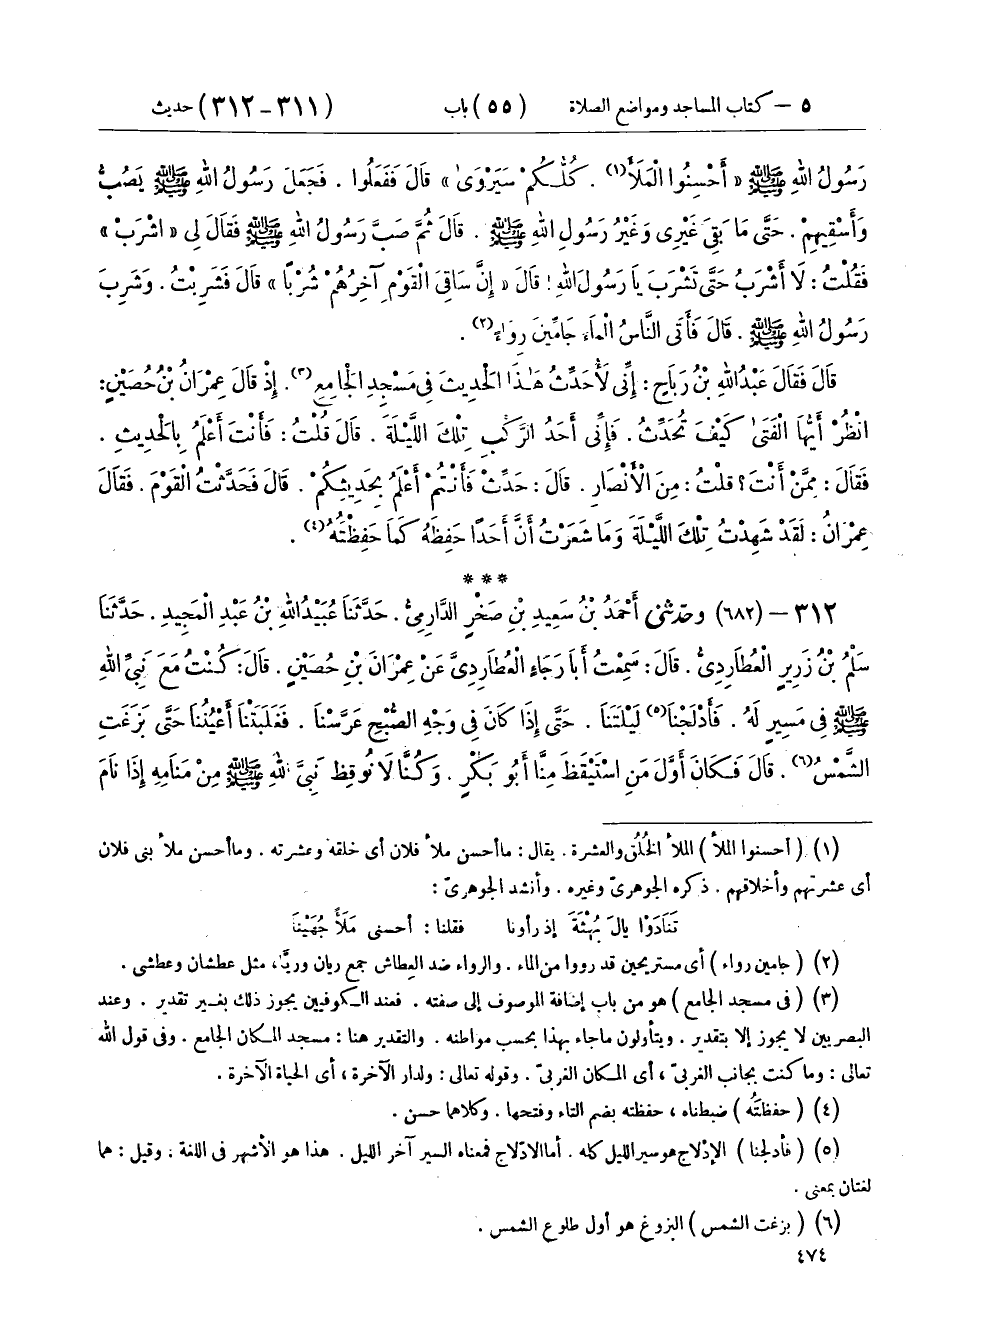 ٥ – كتاب المساجد ومواضع الصلاة (٥٥) باب (٣١١-٣١٢) حديث
رَسُولُ اللهِ ﷺ « أَحْسِنُوا الْمَلَأَ(١) . كُلُّكُمْ سَيَرْوَىٰ » قَالَ فَفَعَلُوا . فَجَعَلَ رَسُولُ اللهِ ﷺ يَصُبُّ
وَأَسْقِيهِمْ . حَتَّى مَا بَقِيَ غَيْرِى وَغَيْرُ رَسُولِ اللهِ ﷺ . قَالَ ثُمَّ صَبَّ رَسُولُ اللهِ ﷺ فَقَالَ لِى « اشْرَبْ »
فَقُلْتُ : لَا أَشْرَبُ حَتَّى تَشْرَبَ يَا رَسُولَ اللهِ ! قَالَ « إِنَّ سَاقِىَ الْقَوْمِ آخِرُهُمْ شُرْبًا » قَالَ فَشَرِبْتُ . وَشَرِبَ
رَسُولُ اللهِ ﷺ . قَالَ فَأَتَى النَّاسُ الْمَاءَ جَامِّينَ رِوَاءً(٢) .
قَالَ فَقَالَ عَبْدُ اللهِ بْنُ رَبَاحٍ : إِنِّى لَأُحَدِّثُ هَـٰذَا الْحَدِيثَ فِى مَسْجِدِ الْجَامِعِ(٣). إِذْ قَالَ عِمْرَانُ بْنُ حُصَيْنٍ:
انْظُرْ أَيُّهَا الْفَتَىٰ كَيْفَ تُحَدِّثُ . فَإِنِّى أَحَدُ الرَّكْبِ تِلْكَ اللَّيْلَةَ . قَالَ قُلْتُ : فَأَنْتَ أَعْلَمُ بِالْحَدِيثِ .
فَقَالَ : مِمَّنْ أَنْتَ ؟ قُلْتُ : مِنَ الْأَنْصَارِ . قَالَ : حَدِّثْ فَأَنْتُمْ أَعْلَمُ بِحَدِيثِكُمْ . قَالَ فَحَدَّثْتُ الْقَوْمَ . فَقَالَ
عِمْرَانُ : لَقَدْ شَهِدْتُ تِلْكَ اللَّيْلَةَ وَمَا شَعَرْتُ أَنَّ أَحَدًا حَفِظَهُ كَمَا حَفِظْتُهُ(٤) .
***
٣١٢ – (٦٨٢) وحدّثنى أَحْمَدُ بْنُ سَعِيدِ بْنِ صَخْرٍ الدَّارِمِىُّ . حَدَّثَنَا عُبَيْدُ اللهِ بْنُ عَبْدِ الْمَجِيدِ . حَدَّثَنَا
سَلْمُ بْنُ زَرِيرٍ الْعُطَارِدِىُّ . قَالَ : سَمِعْتُ أَبَا رَجَاءٍ الْعُطَارِدِىَّ عَنْ عِمْرَانَ بْنِ حُصَيْنٍ . قَالَ: كُنْتُ مَعَ نَبِىِّ اللهِ
ﷺ فِى مَسِيرٍ لَهُ . فَأَدْلَجْنَا(٥) لَيْلَتَنَا . حَتَّى إِذَا كَانَ فِى وَجْهِ الصُّبْحِ عَرَّسْنَا . فَغَلَبَتْنَا أَعْيُنُنَا حَتَّى بَزَغَتِ
الشَّمْسُ(٦). قَالَ فَكَانَ أَوَّلَ مَنِ اسْتَيْقَظَ مِنَّا أَبُو بَكْرٍ . وَكُنَّا لَا نُوقِظُ نَبِىَّ اللهِ ﷺ مِنْ مَنَامِهِ إِذَا نَامَ
(١) ( أحسنوا الملأ ) الملأ الخُلُق والعشرة . يقال : ما أحسن ملأ فلان أى خلقه وعشرته . وما أحسن ملأ بنى فلان
أى عشرتهم وأخلاقهم . ذكره الجوهرىّ وغيره . وأنشد الجوهرىّ :
تَنَادَوْا يالَ بُهْثَةَ إذ رأونا فقلنا : أحسنى مَلَأً جُهَيْنَا
(٢) ( جامين رواء ) أى مستريحين قد رووا من الماء . والرواء ضد العطاش جمع ريان وريَّا، مثل عطشان وعطشى .
(٣) ( فى مسجد الجامع ) هو من باب إضافة الموصوف إلى صفته . فعند الكوفيين يجوز ذلك بغير تقدير . وعند
البصريين لا يجوز إلا بتقدير . ويتأولون ما جاء بهذا بحسب مواطنه . والتقدير هنا : مسجد المكان الجامع . وفى قول الله
تعالى : وما كنت بجانب الغربىّ ، أى المكان الغربىّ . وقوله تعالى : ولدار الآخرة ، أى الحياة الآخرة .
(٤) ( حفظتُه ) ضبطناه ، حفظته بضم التاء وفتحها . وكلاهما حسن .
(٥) ( فأدلجنا ) الإدْلاج هو سير الليل كله . أما الادّلاج فمعناه السير آخر الليل . هذا هو الأشهر فى اللغة ، وقيل : هما
لغتان بمعنى .
(٦) ( بزغت الشمس ) البزوغ هو أول طلوع الشمس .
٤٧٤